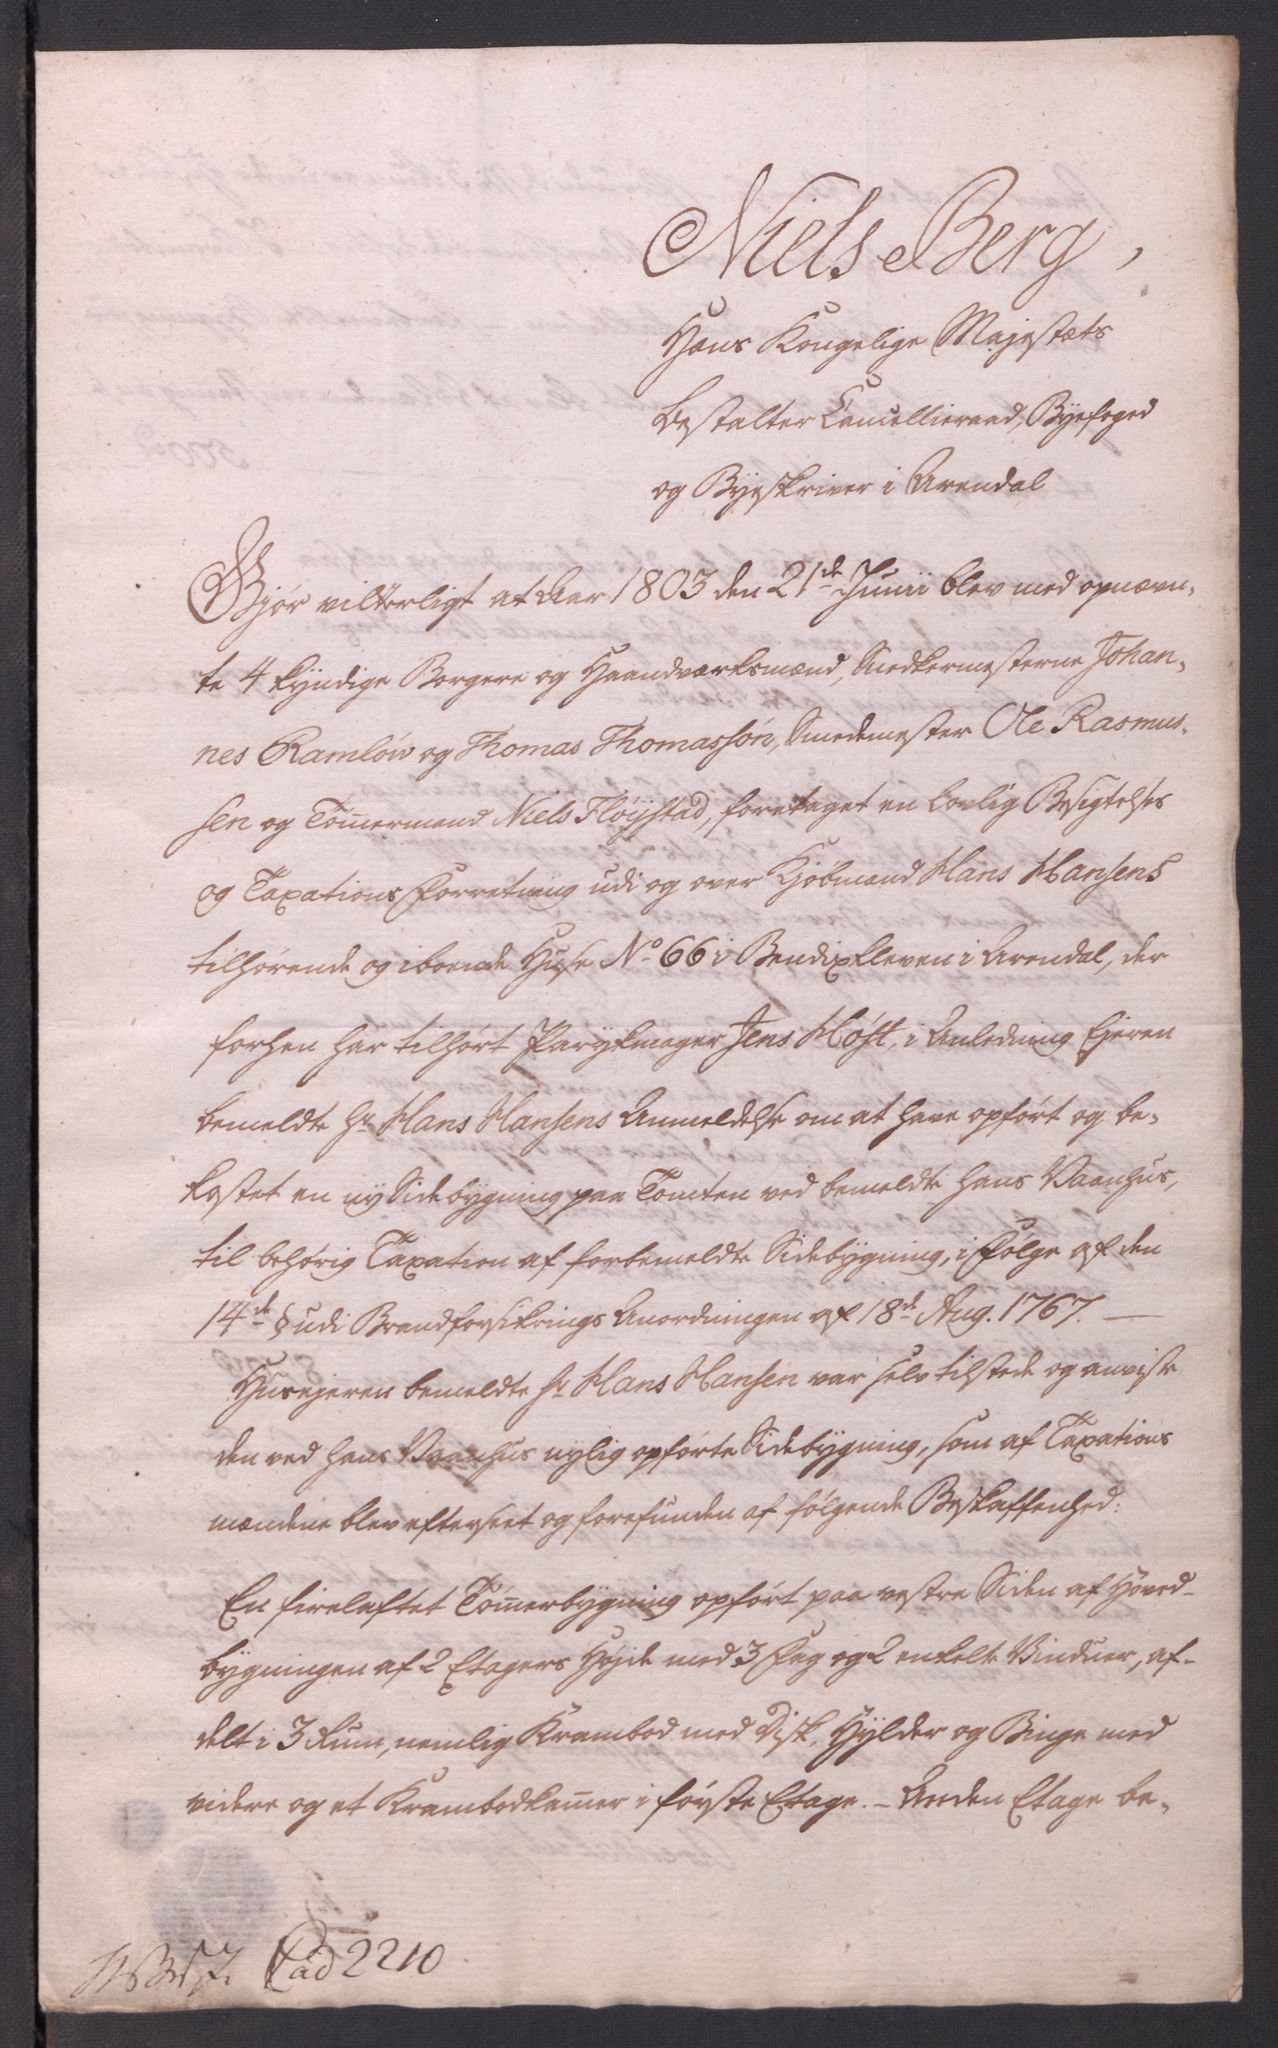 Niels Berg,
Hans Kongelige Majestæts
bestalter Cancellieraad, Byefoged
og Byeskriver i Arendal
Gjør vitterligt at Aar 1803 den 21de Junii blev med opnævn-
te 4 kyndige Borgere og Haandværksmænd, Snedkermesterne Johan-
nes Ramlöw og Thomas Thomassön, Smedemester Ole Rasmus-
sen og Tömermand Niels Flöystad, foretaget en lovlig Besigtelses
og Taxations Forretning udi og over Kjöbmand Hans Hansens
tilhörende og iboende Huse No 66 i Bendixkleven i Arendal, der
forhen har tilhört Parykmager Jens Höst, i Anledning Ejeren
bemeldte Hr Hans Hansens Anmeldelse om at have opfört og be-
kostet en ny Sidebygning paa Tomten ved bemeldte hans Vaanhus,
til behörig Taxation af forbemeldte Sidebygning, i Fölge af den
14de § udi Brandforsikrings Anordningen af 18de Aug. 1767. —
Husejeren bemeldte Hr Hans Hansen var selv tilstede og anviste
den ved hans Vaanhus nylig opförte Sidebygning, som af Taxations
mændene blev efterseet og forefunden af fölgende Beskaffenhed:
En firelaftet Tömerbygning opfört paa vestre Siden af Hoved-
bygningen af 2 Etagers Höjde med 3 Fag og 2 enkelte Vinduer, af-
delt i 3 Rum, nemlig Krambod med Disk, Hylder og Binge med
videre og et Krambodkamer i förste Etage. – Anden Etage be-
2210